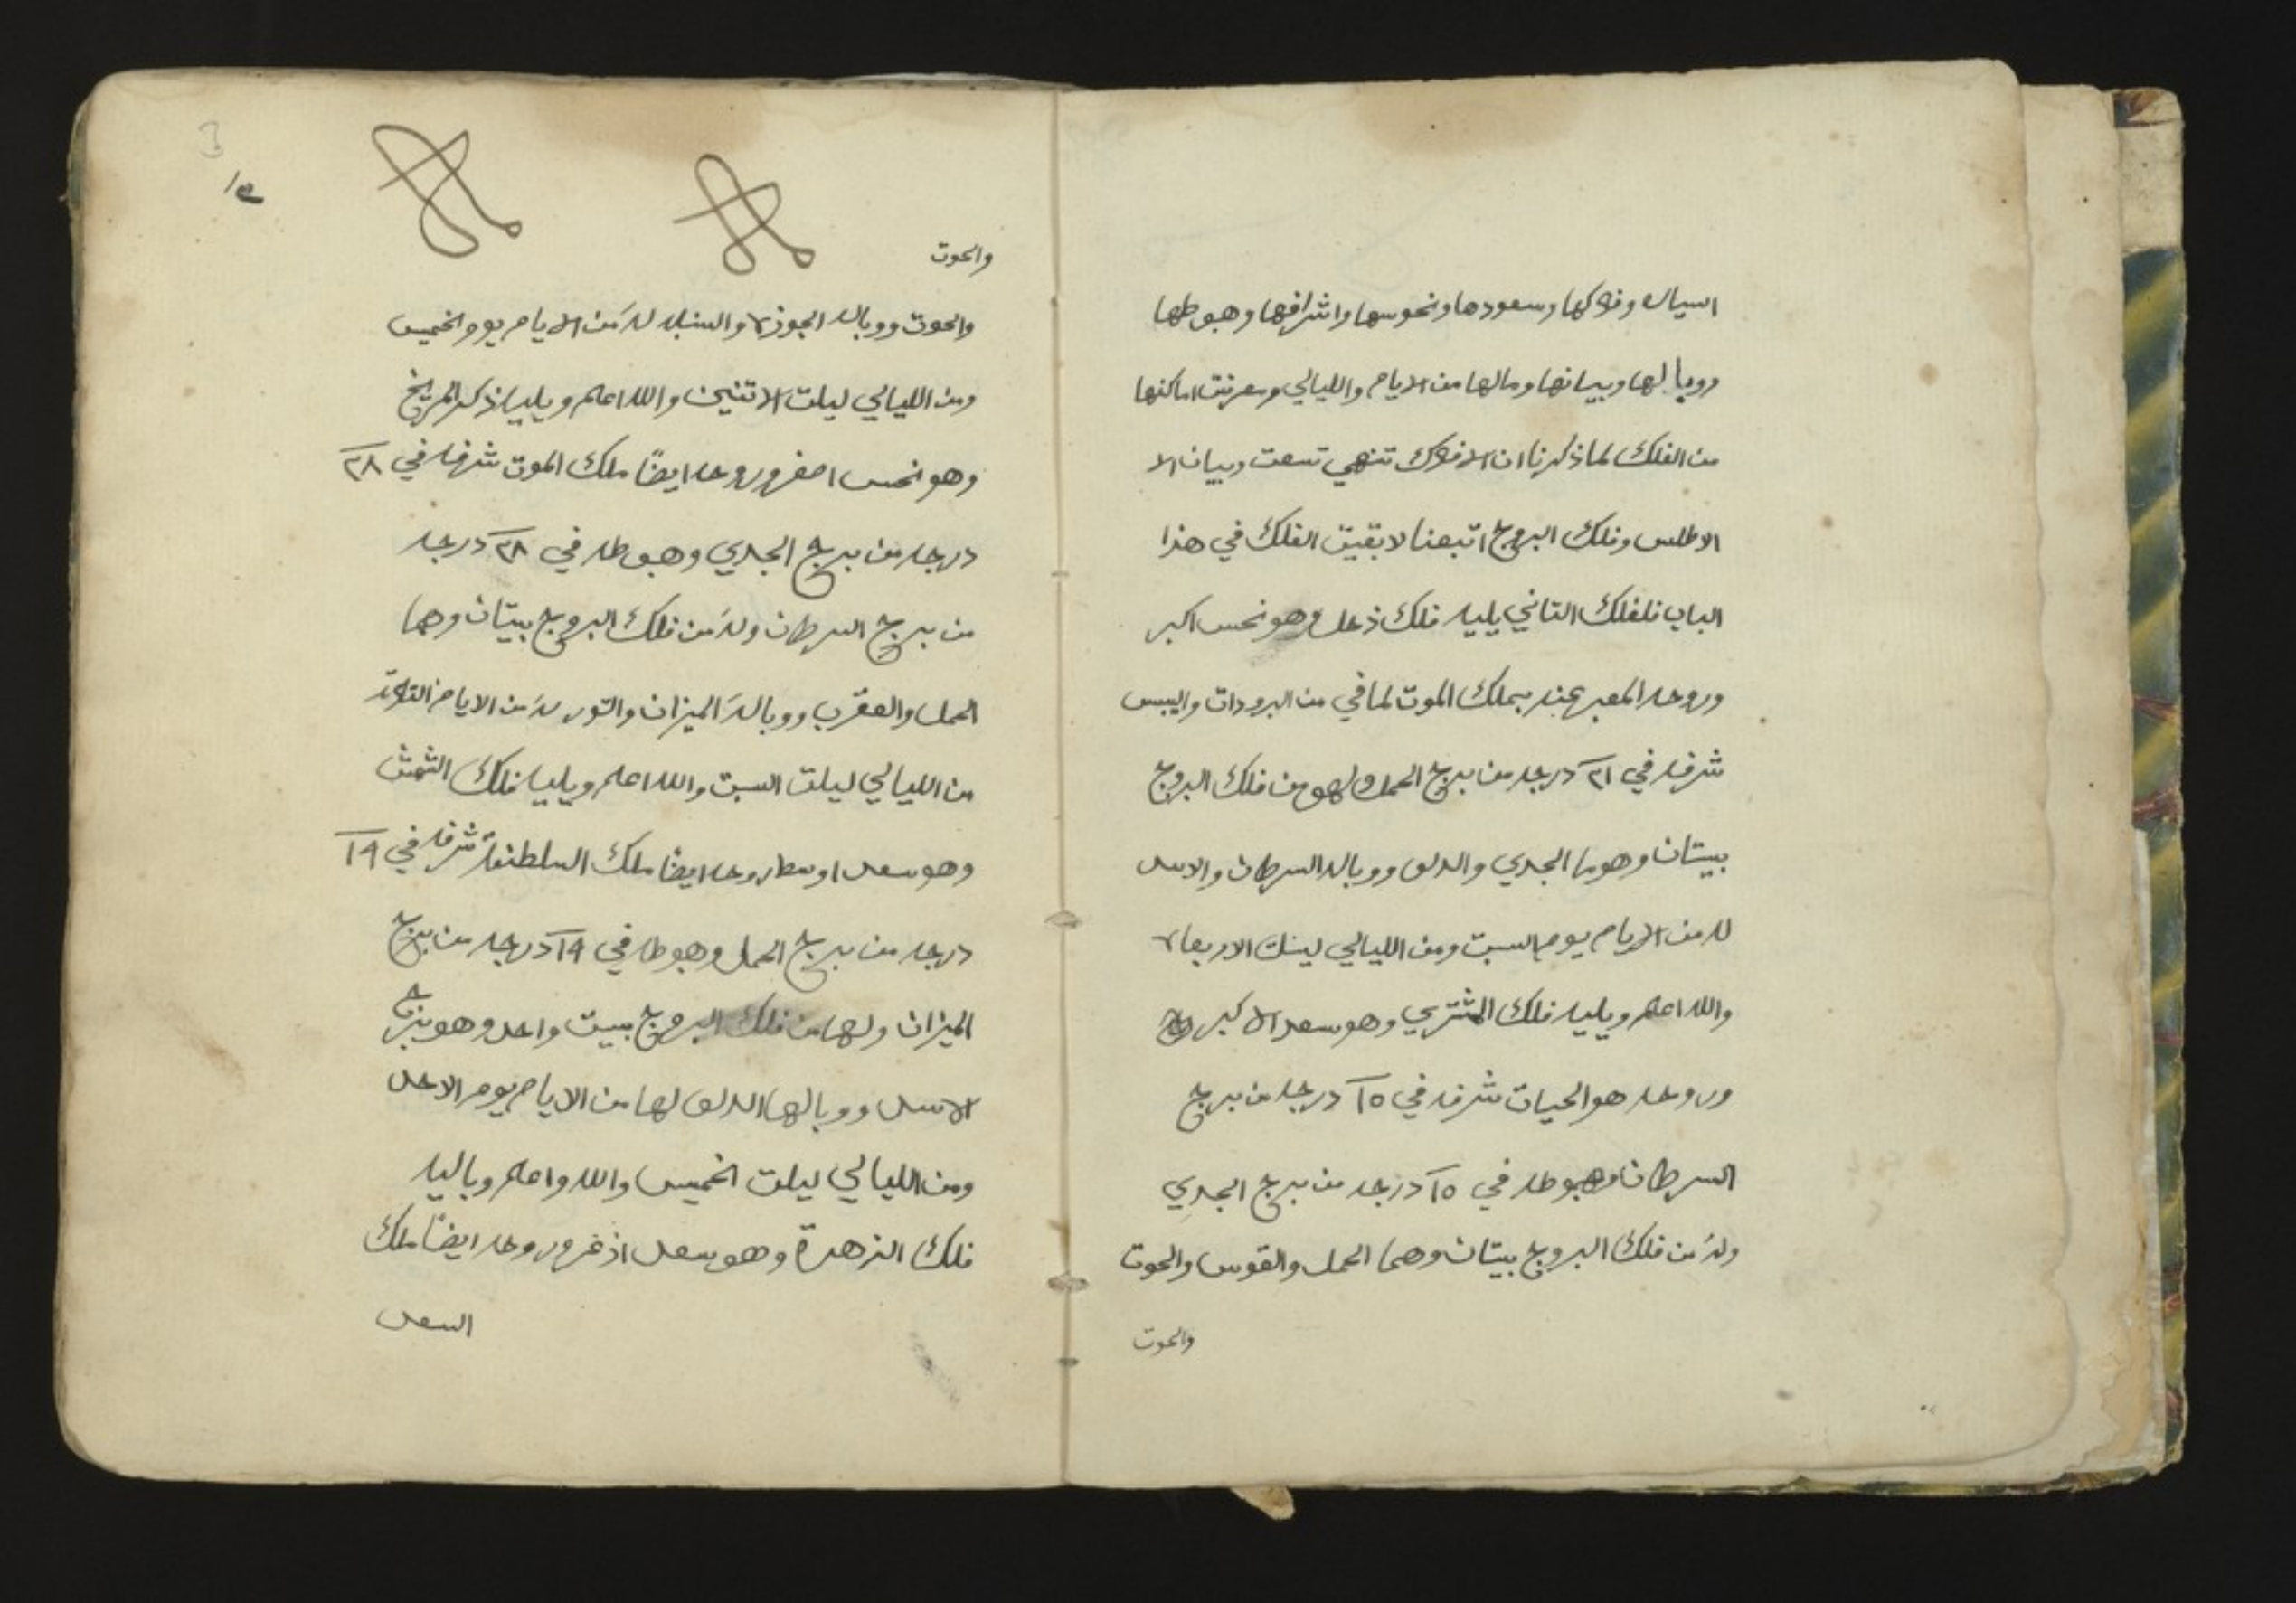 السياره وفلاكها وسعودها ونحوسها واشرافها وهبوطها
ووبالها وبيانها ومالها من الايام والليالي ومعرفت اماكنها
من الفلك لما ذكرنا ان الافلاك تنهي تسعت وبيان الا
الاطلس وفلك البروج اتبعنا لا بقيت الفلك في هذا
الباب فلفلك التاني يليه فلك ذحل وهو نحس اكبر
وروحه المعبر عنه بملك الموت لما في من البرودات واليبس
شرفه في ٢١ درجه من برج الحمل ولهو من فلك البروج
بيتان وهوما الجدي والدلو ووباله السرطان والاسد
له من الايام يوم السبت ومن الليالي ليلت الاربعاء
والله اعلم ويليه فلك المشتري وهو سعد الاكبر
وروحه هو الحيات شرفه في ١٥ درجه من برج
السرطان وهبوطه في ١٥ درجه من برج الجدي
وله من فلك البروج بيتان وهما الحمل والقوس والحوت
والحوت
١٣
والحوت
والحوت ووباله الجوزاء والسنبله له من الايام يوم الخميس
ومن الليالي ليلت الاتنين والله اعلم ويليه ذكر المريخ
وهو نحس اصغر وروحه ايضًا ملك الموت شرفه في ٢٨
درجه من برج الجدي وهبوطه في ٢٨ درجه
من برج السرطان وله من فلك البروج بيتان وهما
الحمل والعقرب ووباله الميزان والتور له من الايام التلاته
من الليالي ليلت السبت والله اعلم ويليه فلك الشمش
وهو سعد اوسط روحه ايضًا ملك السلطنه شرفه في ١٩
درجه من برج الحمل وهبوطه في ١٩ درجه من برج
الميزان ولها من فلك البروج بيت واحد وهو برج
الاسد ووبالها الدلو لها من الايام يوم الاحد
ومن الليالي ليلت الخميس والله واعلم وباليه
فلك الزهرة وهو سعد اذغر وروحه ايضًا ملك
السعد